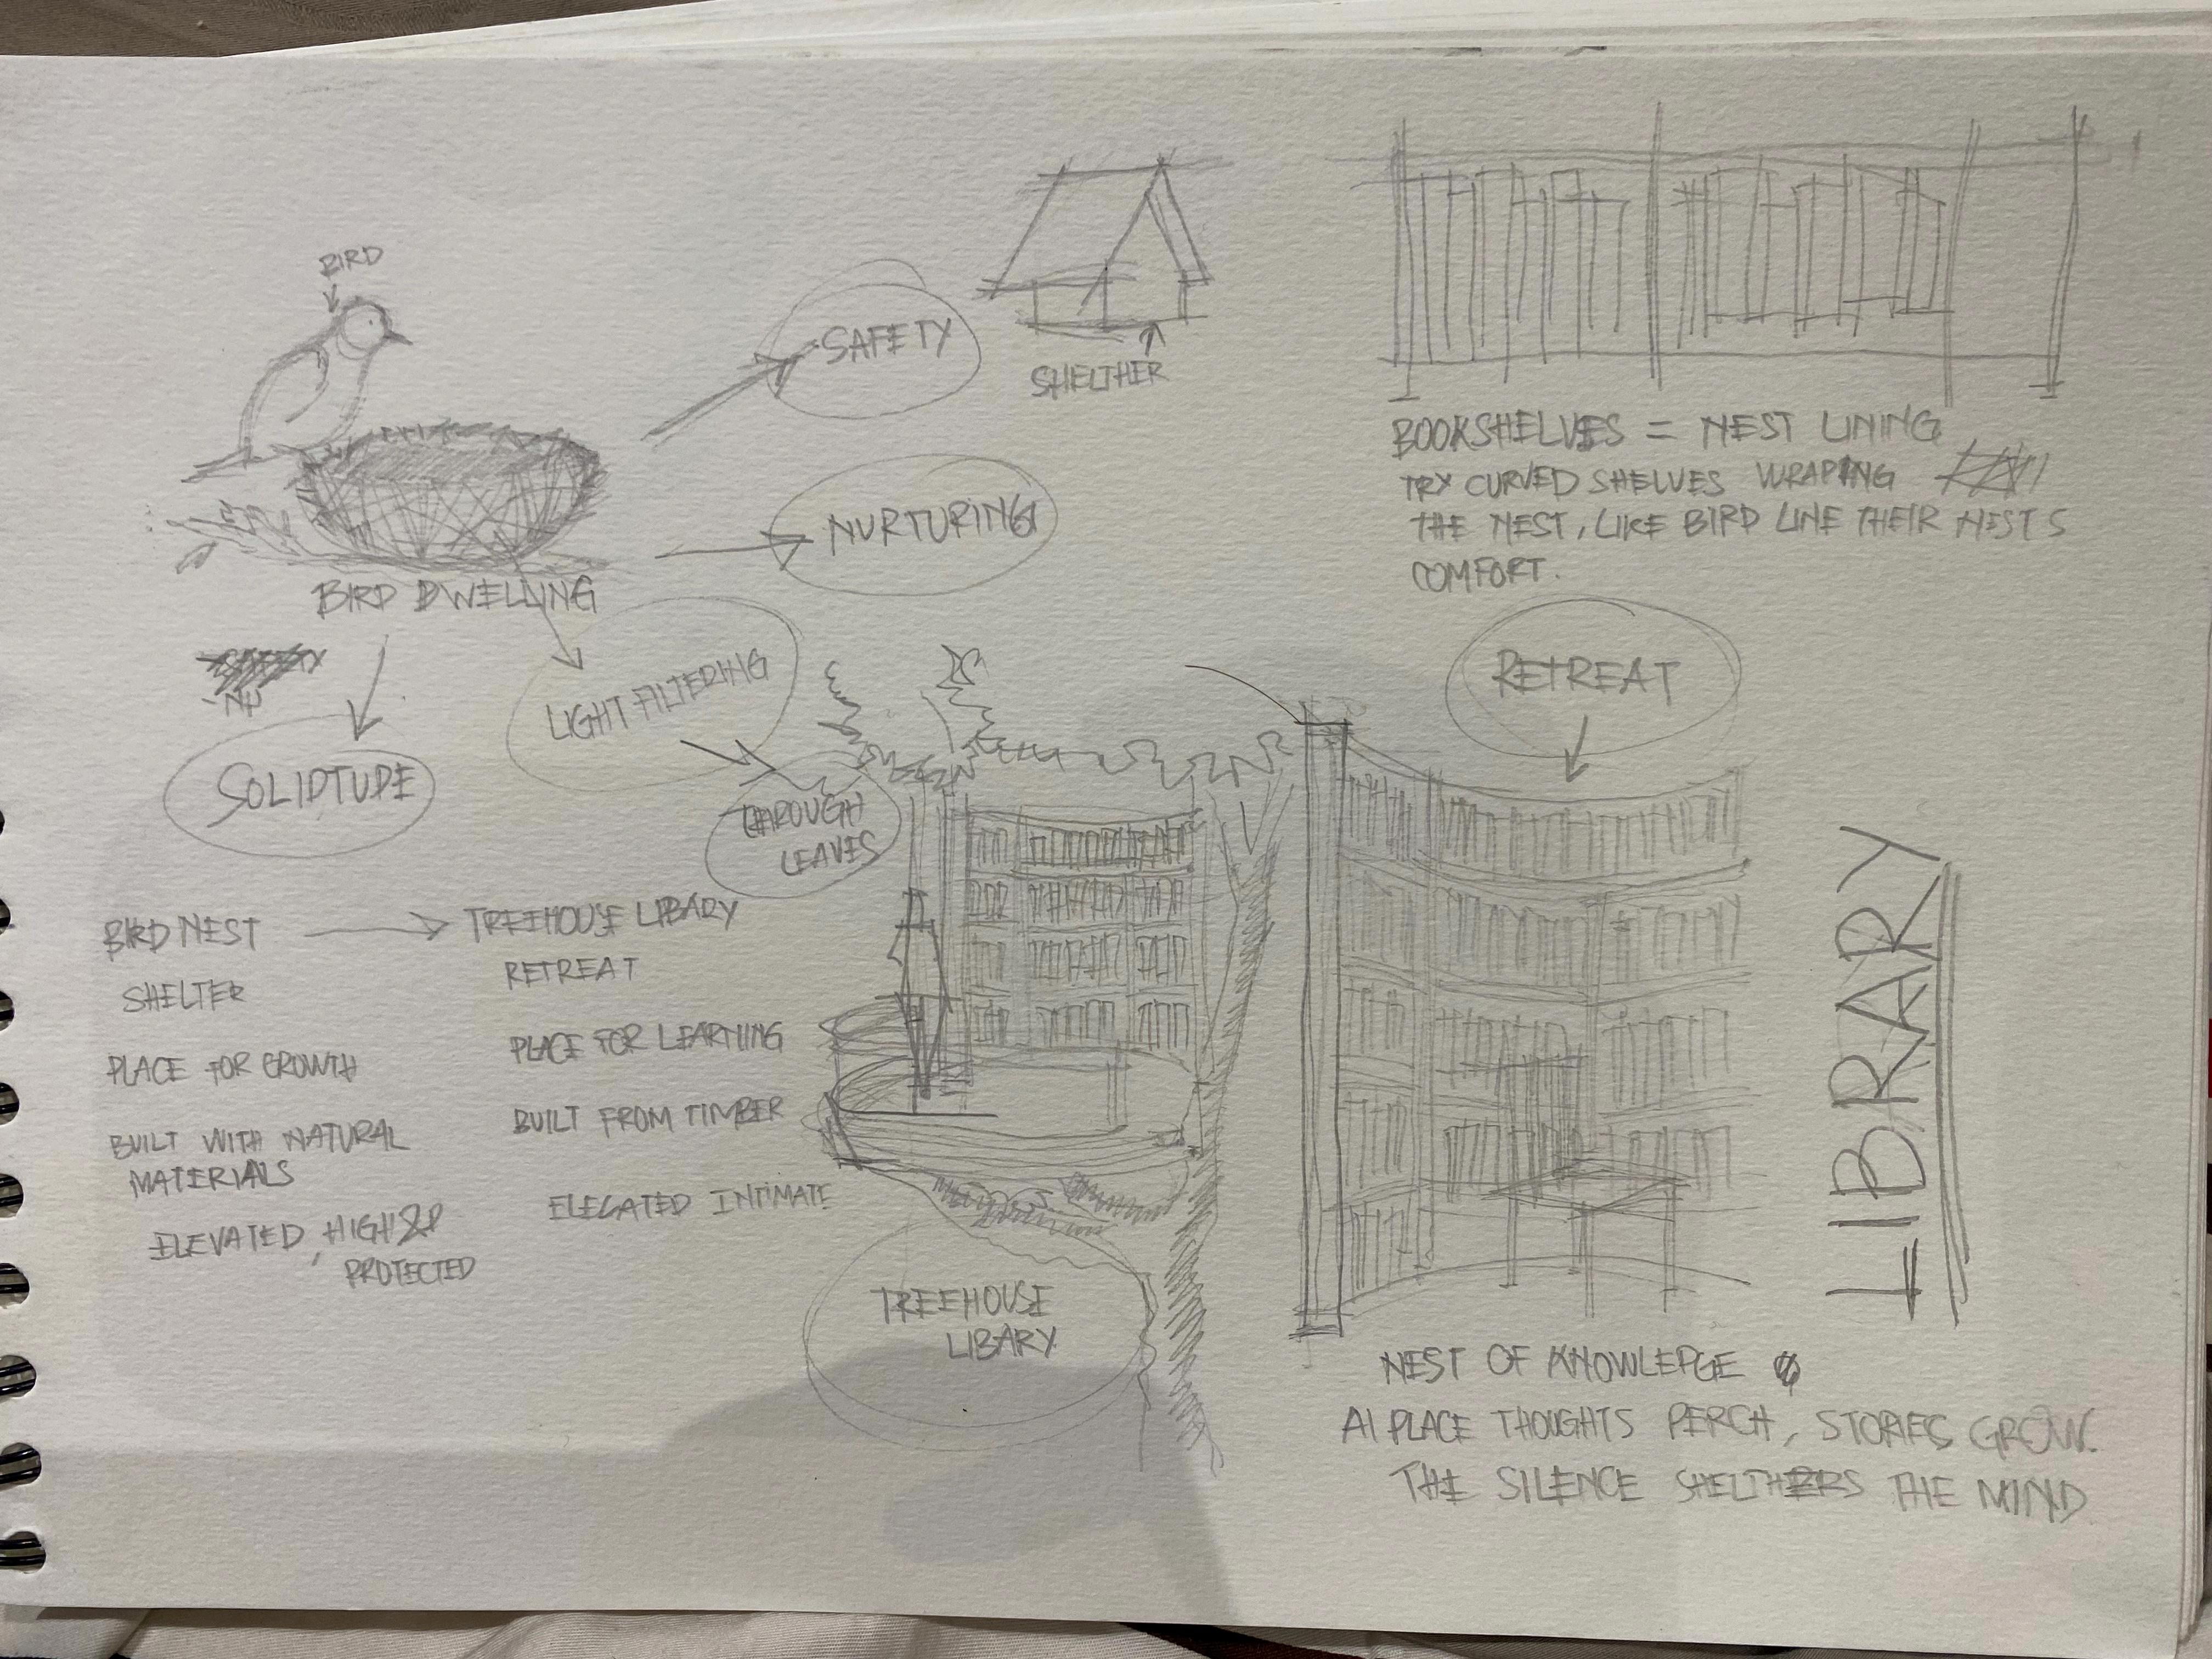 BIRD
BIRD DWELLING
SAFETY
SHELTHER
NURTURING
LIGHT FILTERING
THROUGH
LEAVES
- NU
SOLIDTUDE
BIRD NEST
SHELTER
PLACE FOR GROWTH
BUILT WITH NATURAL
MATERIALS
ELEVATED, HIGH &
PROTECTED
TREEHOUSE LIBARY
RETREAT
PLACE FOR LEARNING
BUILT FROM TIMBER
ELEGATED INTIMATE
TREEHOUSE
LIBARY
BOOKSHELVES = NEST LINING
TRY CURVED SHELVES WRAPING
THE NEST, LIKE BIRD LINE THEIR NESTS
COMFORT.
RETREAT
LIBRARY
NEST OF KNOWLEDGE
A PLACE THOUGHTS PERCH, STORIES GROW.
THE SILENCE SHELTHERS THE MIND